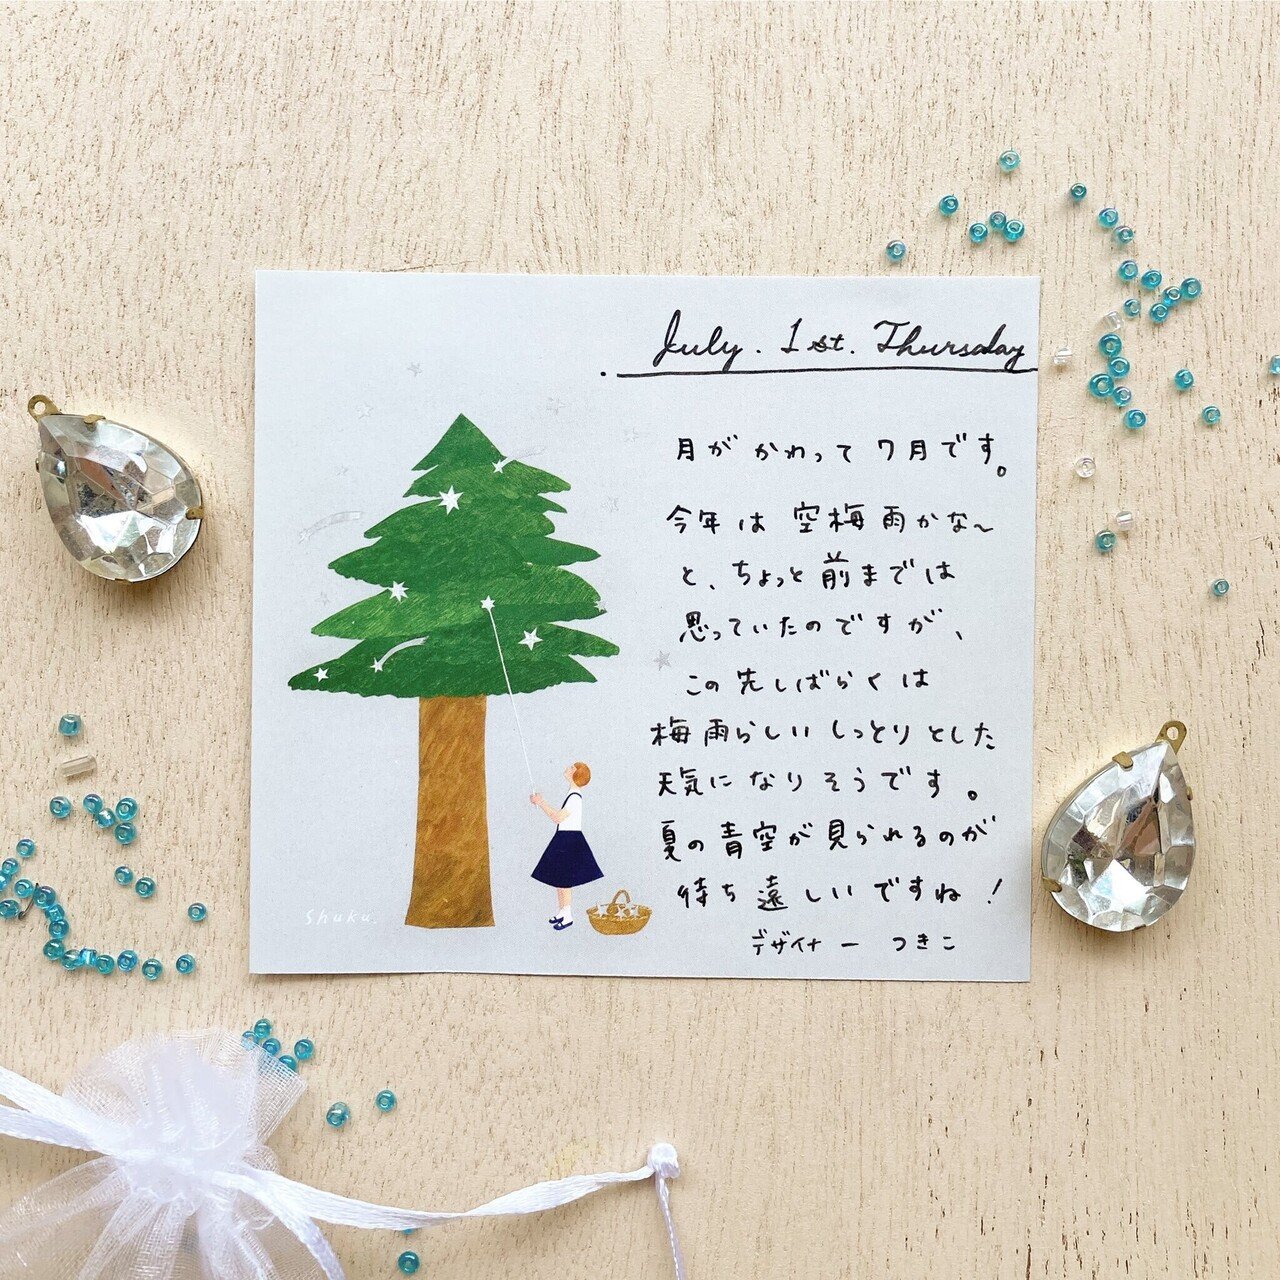 July. 1st. Thursday
月がかわって7月です。
今年は空梅雨かな〜
と、ちょっと前までは
思っていたのですが、
この先しばらくは
梅雨らしいしっとりとした
天気になりそうです。
夏の青空が見られるのが
待ち遠しいですね!
デザイナー つきこ
Shaku.